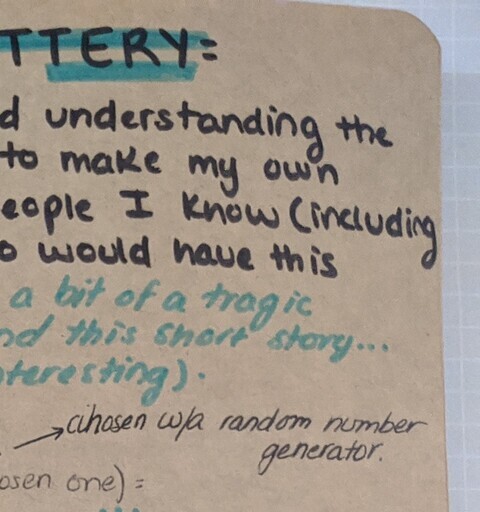 TTERY=
d understanding the
to make my own
eople I know (including
o would have this
a bit of a tragic
nd this short story...
teresting).
cihosen w/a random number
generator.
osen one) =